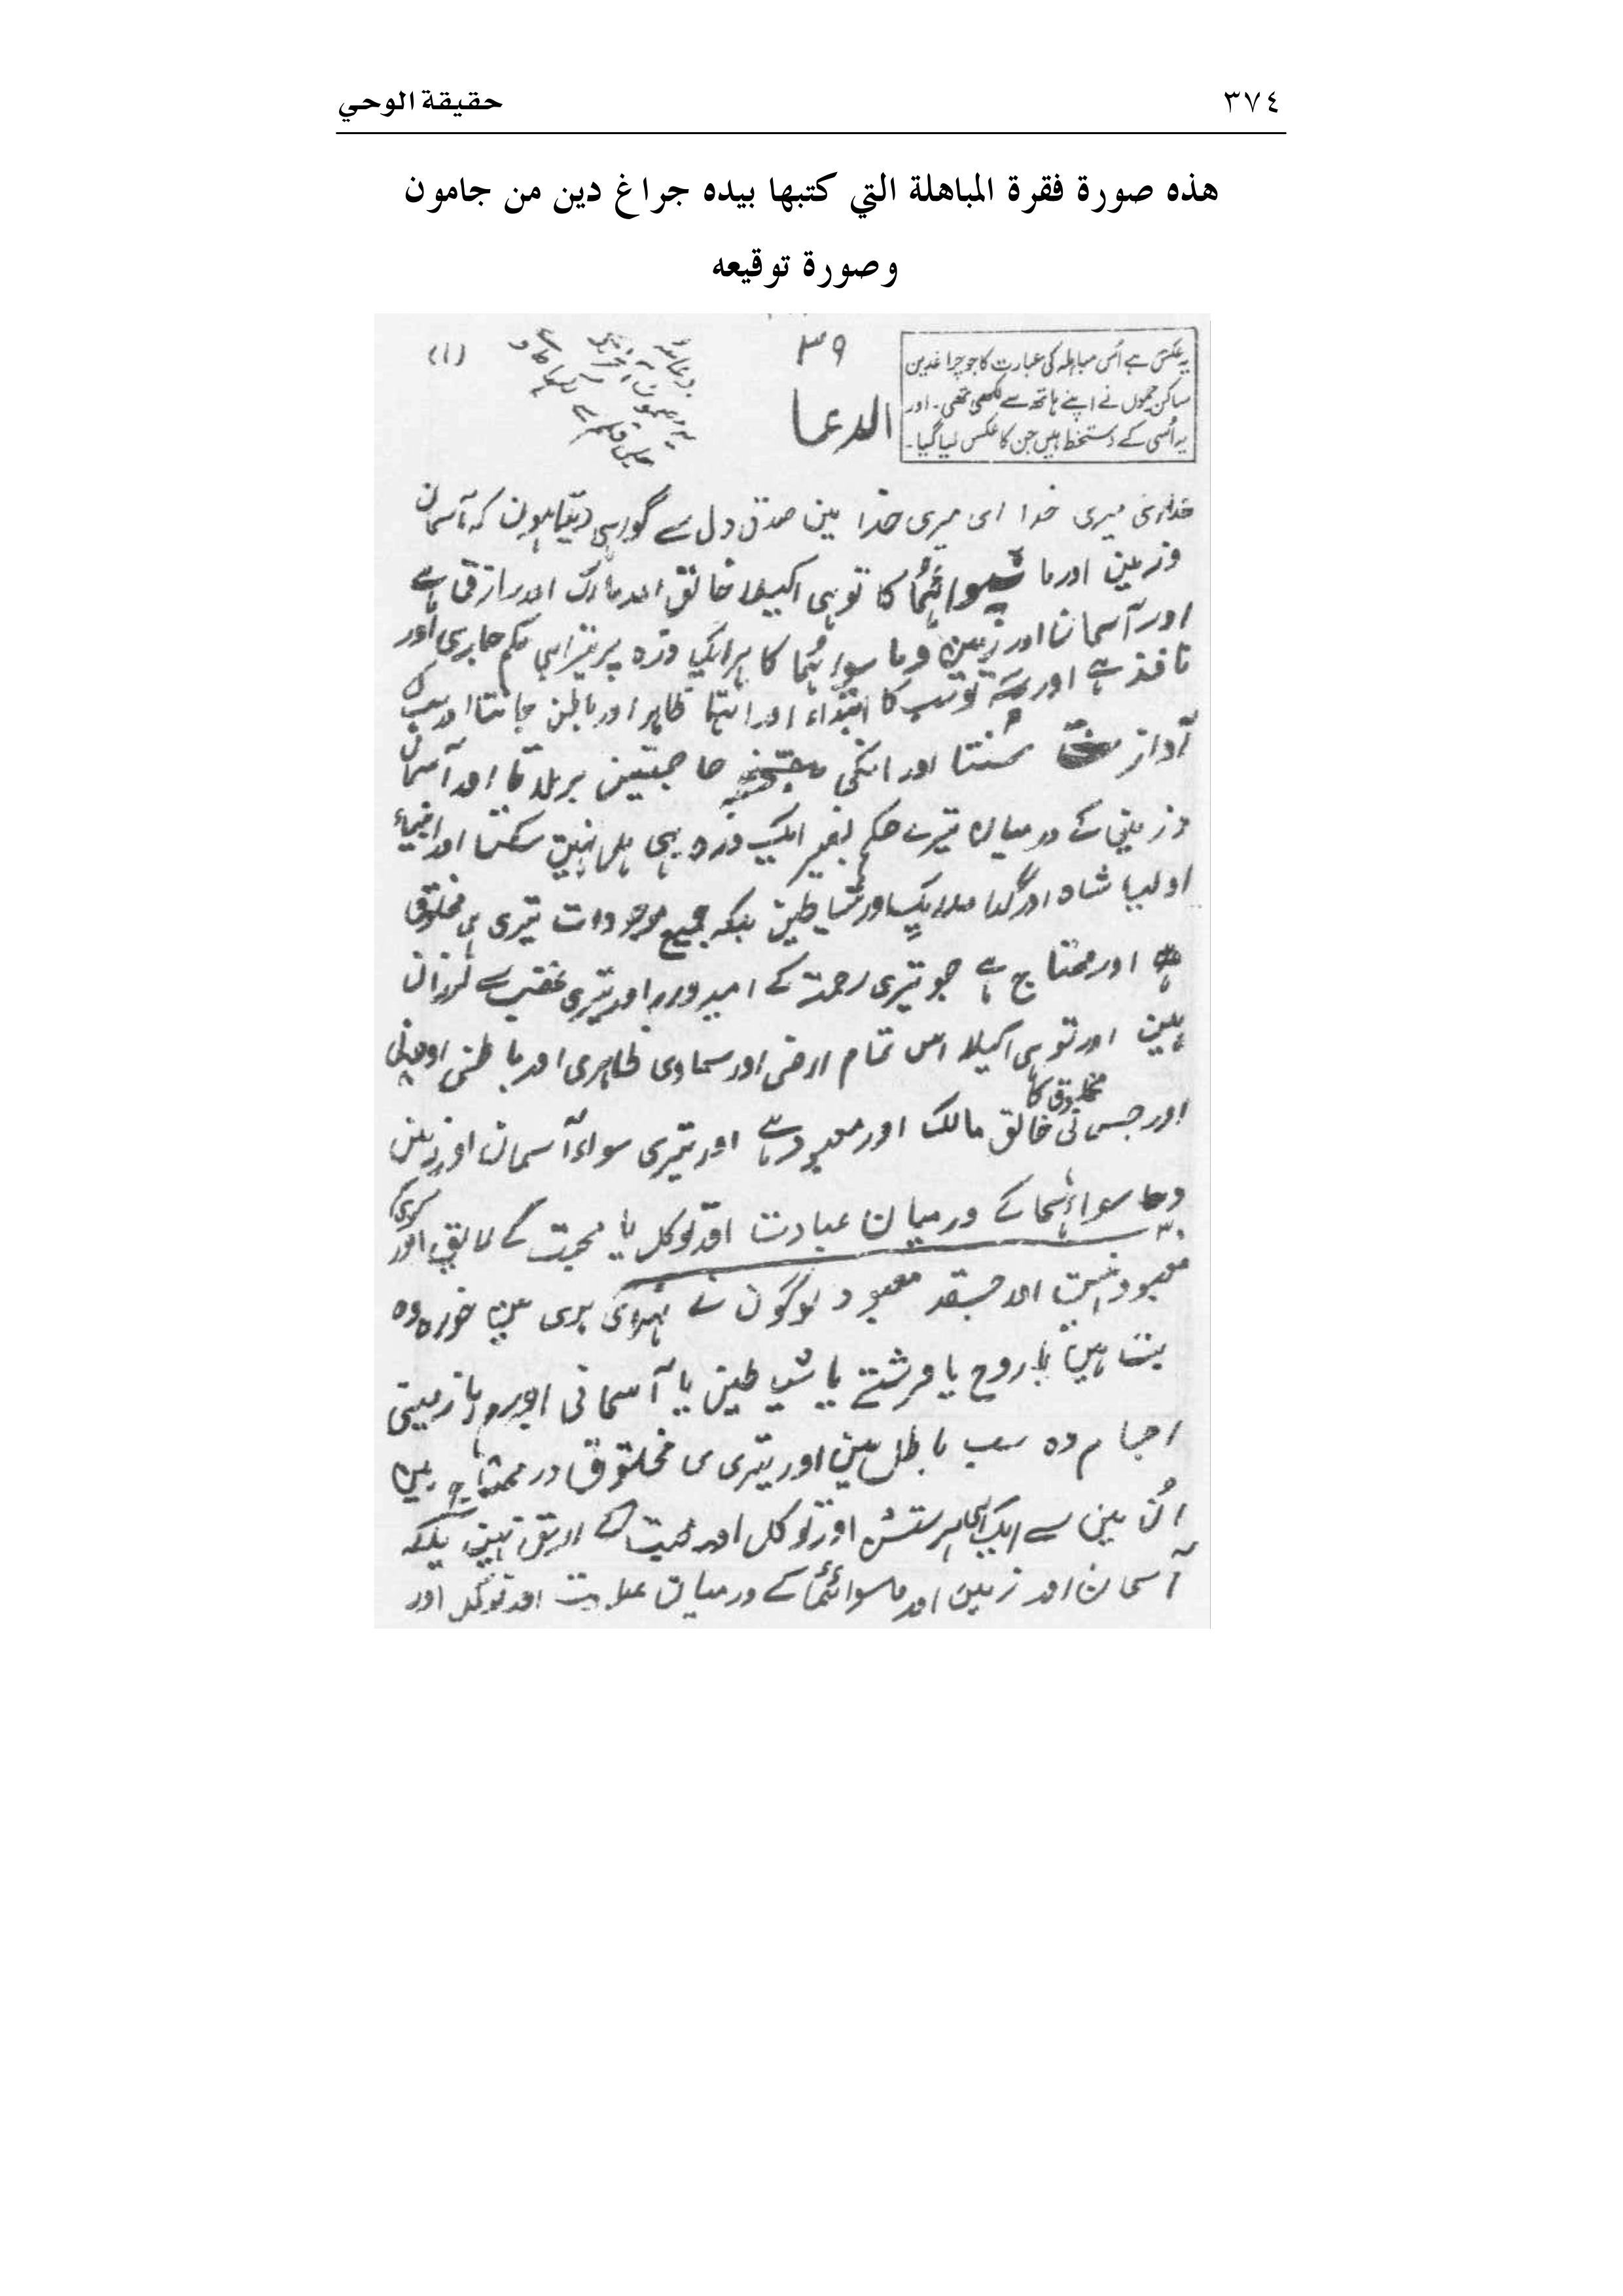 ٣٧٤
حقيقة الوحي
هذه صورة فقرة المباهلة التي كتبها بيده جراغ دين من جامون
وصورة توقيعه
یہ عکس ہے اُس مباہلہ کی عبارت کا جو چراغدین
ساکن جموں نے اپنے ہاتھ سے لکھی تھی۔ اور
یہ اُسی کے دستخط ہیں جن کا عکس لیا گیا۔
٣٩
(١)
الدعا
میری خدا ای میری خدا مین صدق دل سے گواہی دیتا ہون کہ آسمان
و زمین اور ما کا تو ہی اکیلا خالق اور مالک اور رازق ہے
اور آسمان اور زمین و ما سوائہما کا ہر ایک ذرہ پر تیرا ہی حکم جاری اور
نافذ ہے اور تو سب کا ابتداء اور انتہا ظاہر اور باطن جانتا اور سب کی
آواز سنتا اور انکی حاجتین بر لاتا اور آسمان
و زمین کے درمیان تیرے حکم بغیر ایک ذرہ بہی ہل نہین سکتا اور انبیاء
اولیا شاہ اور گدا ملائیک اور شیاطین بلکہ جمیع موجودات تیری ہی مخلوق
ہے اور محتاج ہے جو تیری رحمت کے امیدوار اور تیری غضب سے لرزان
ہین اور تو ہی اکیلا اس تمام ارضی اور سماوی ظاہری اور باطنی
مخلوق کا
اور خالق مالک اور معبود ہے اور تیری سواء آسمان اور زمین
وما سواءہما کے درمیان عبادت اور توکل یا محبت کے لائق اور
معبود نہین اور جسقدر معبود لوگون نے ہین خواہ وہ
بت ہین یا روح یا فرشتے یا شیاطین یا آسمانی یا زمینی
اجسام وہ سب باطل ہین اور تیری ہی مخلوق اور محتاج ہین
اُن مین سے ایک بہی پرستش اور توکل اور محبت کے لایق نہین بلکہ
آسمان اور زمین اور ما سوائہما کے درمیان عبادت اور توکل اور